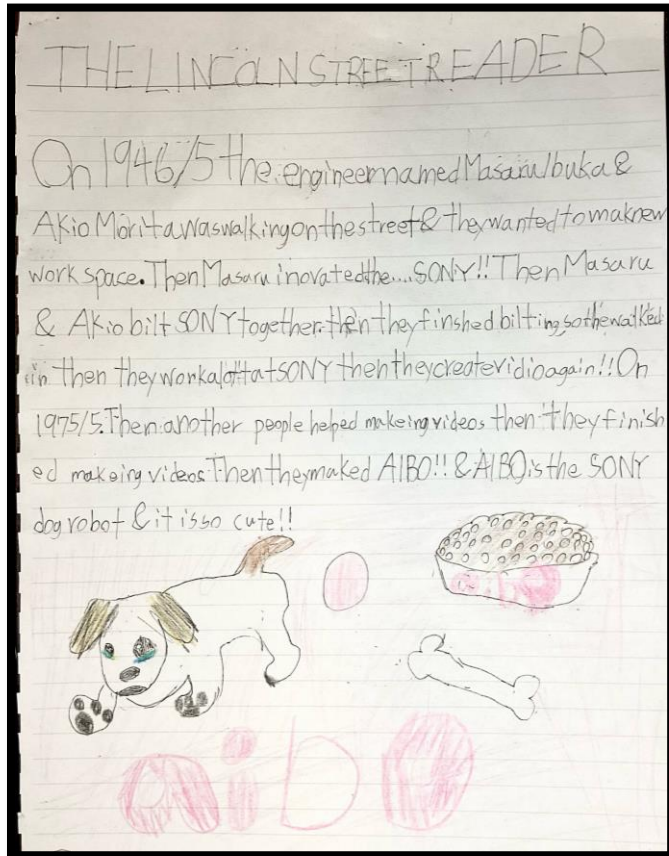 THE LINCOLN STREET READER
On 1946/5 the engineer named Masaru Ibuka &
Akio Morita was walking on the street & they wanted to mak new
work space. Then Masaru inovated the.... SONY!! Then Masaru
& Akio bilt SONY together. then they finshed bilting, so the walked
in then they work alot at SONY then they create vidio again!! On
1975/5. Then another people helped makeing videos then they finish
ed makeing videos Then they maked AIBO!! & AIBO is the SONY
dog robot & it is so cute!!
aibo